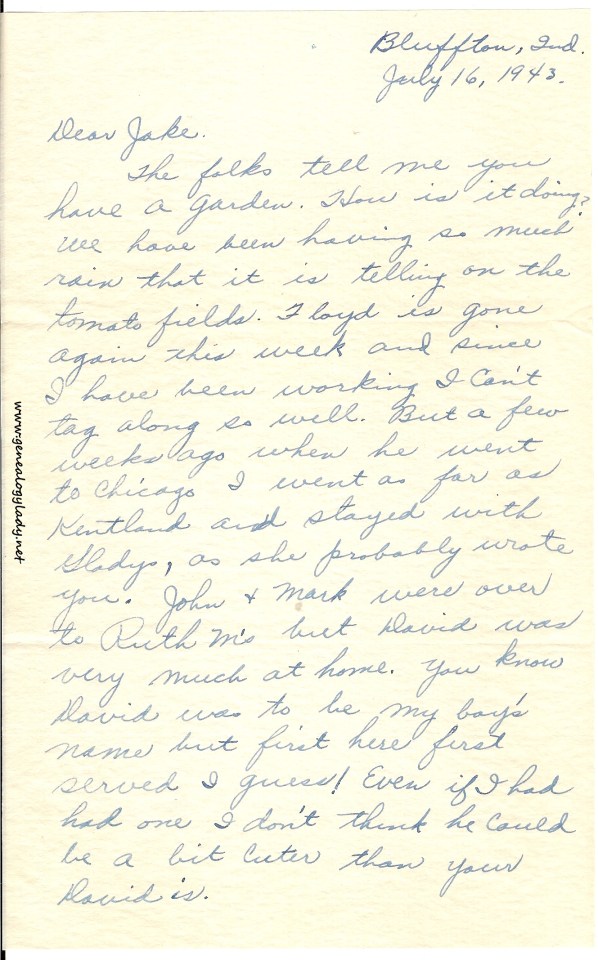 Bluffton, Ind.
July 16, 1943.
Dear Jake.
The folks tell me you
have a garden. How is it doing?
We have been having so much
rain that it is telling on the
tomato fields. Floyd is gone
again this week and since
I have been working I can't
tag along so well. But a few
weeks ago when he went
to Chicago I went as far as
Kentland and stayed with
Gladys, as she probably wrote
you. John & Mark were over
to Ruth M's but David was
very much at home. You know
David was to be my boy's
name but first here first
served I guess! Even if I had
had one I don't think he could
be a bit cuter than your
David is.
www.genealogylady.net